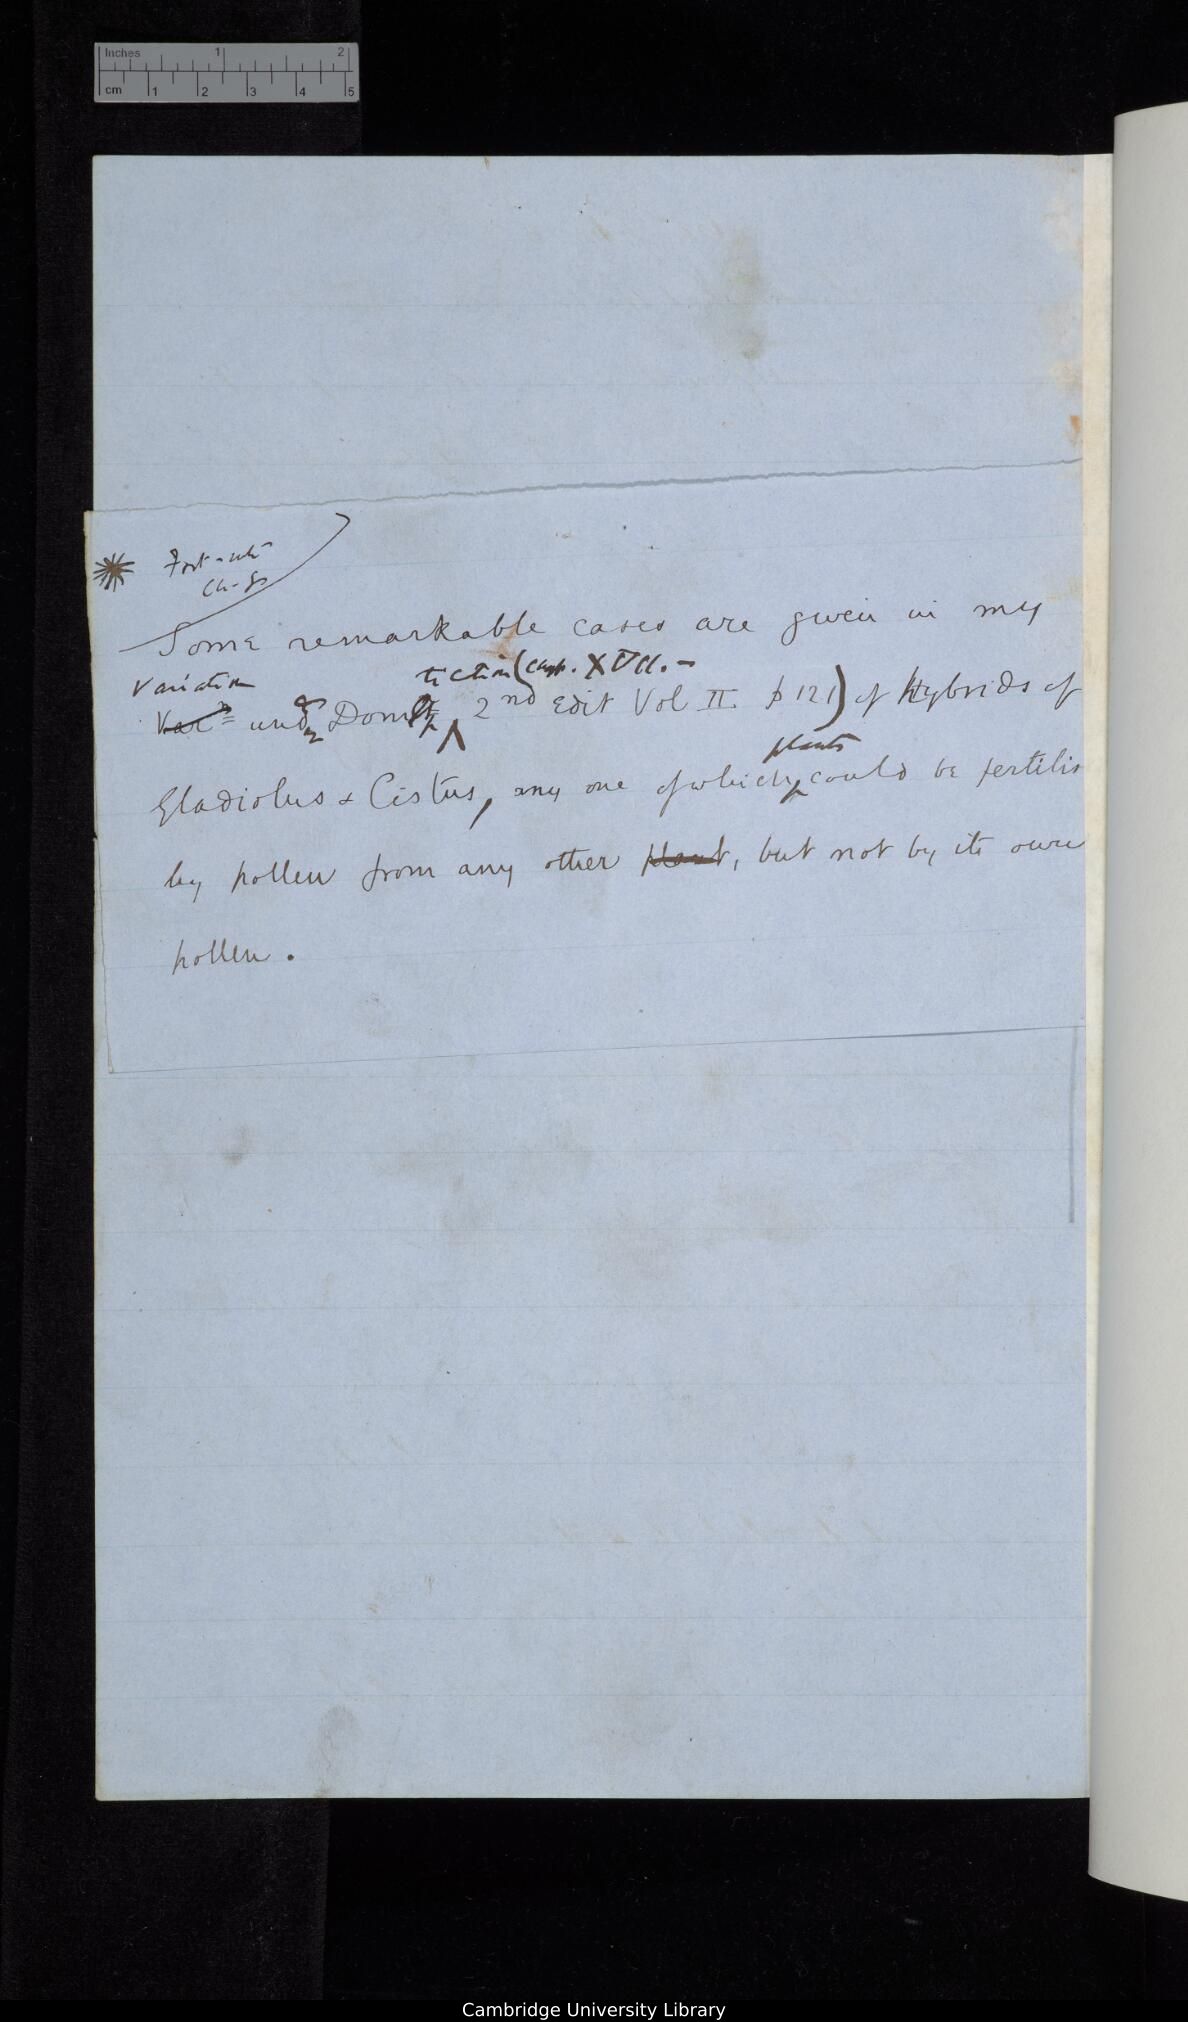 Inches 1 2
cm 1 2 3 4 5
Foot-note
Ch. 8
Some remarkable cases are given in my
Variation tication (chap. XVII. –
Varn under Dom 2nd Edit Vol II. p 121) of Hybrids of
plants
Gladiolus & Cistus, any one of which could be fertilis
by pollen from any other plant, but not by its own
pollen.
Cambridge University Library